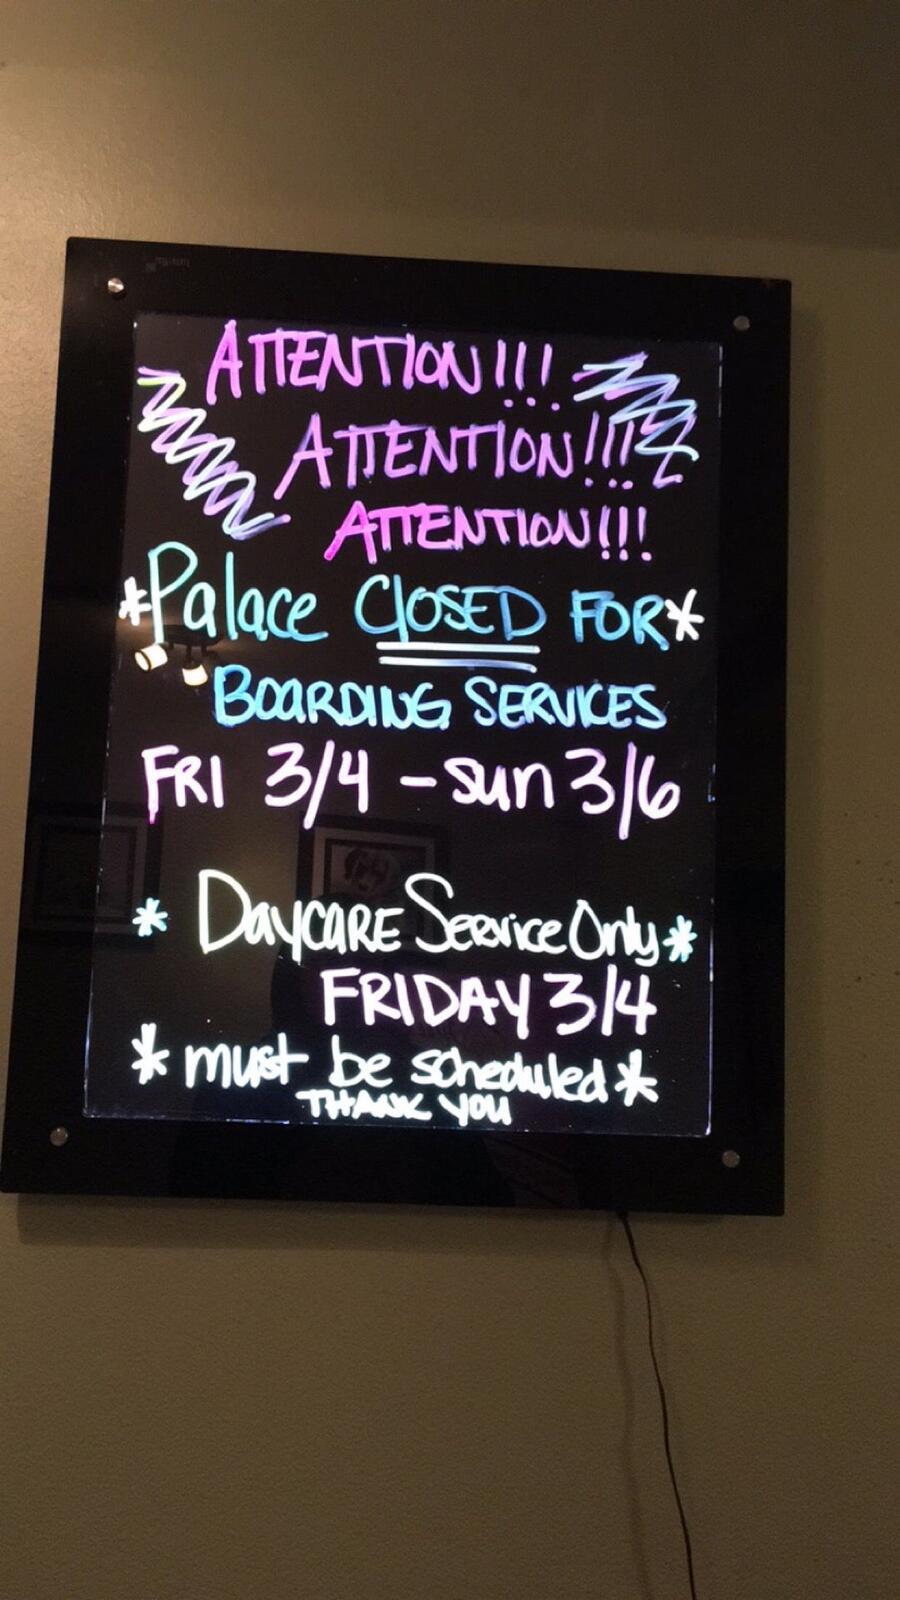 ATTENTION!!!
ATTENTION!!!
ATTENTION!!!
*Palace CLOSED FOR*
BOARDING SERVICES
FRI 3/4 - sun 3/6
* DAYCARE Service Only*
FRIDAY 3/4
* must be scheduled *
THANK YOU